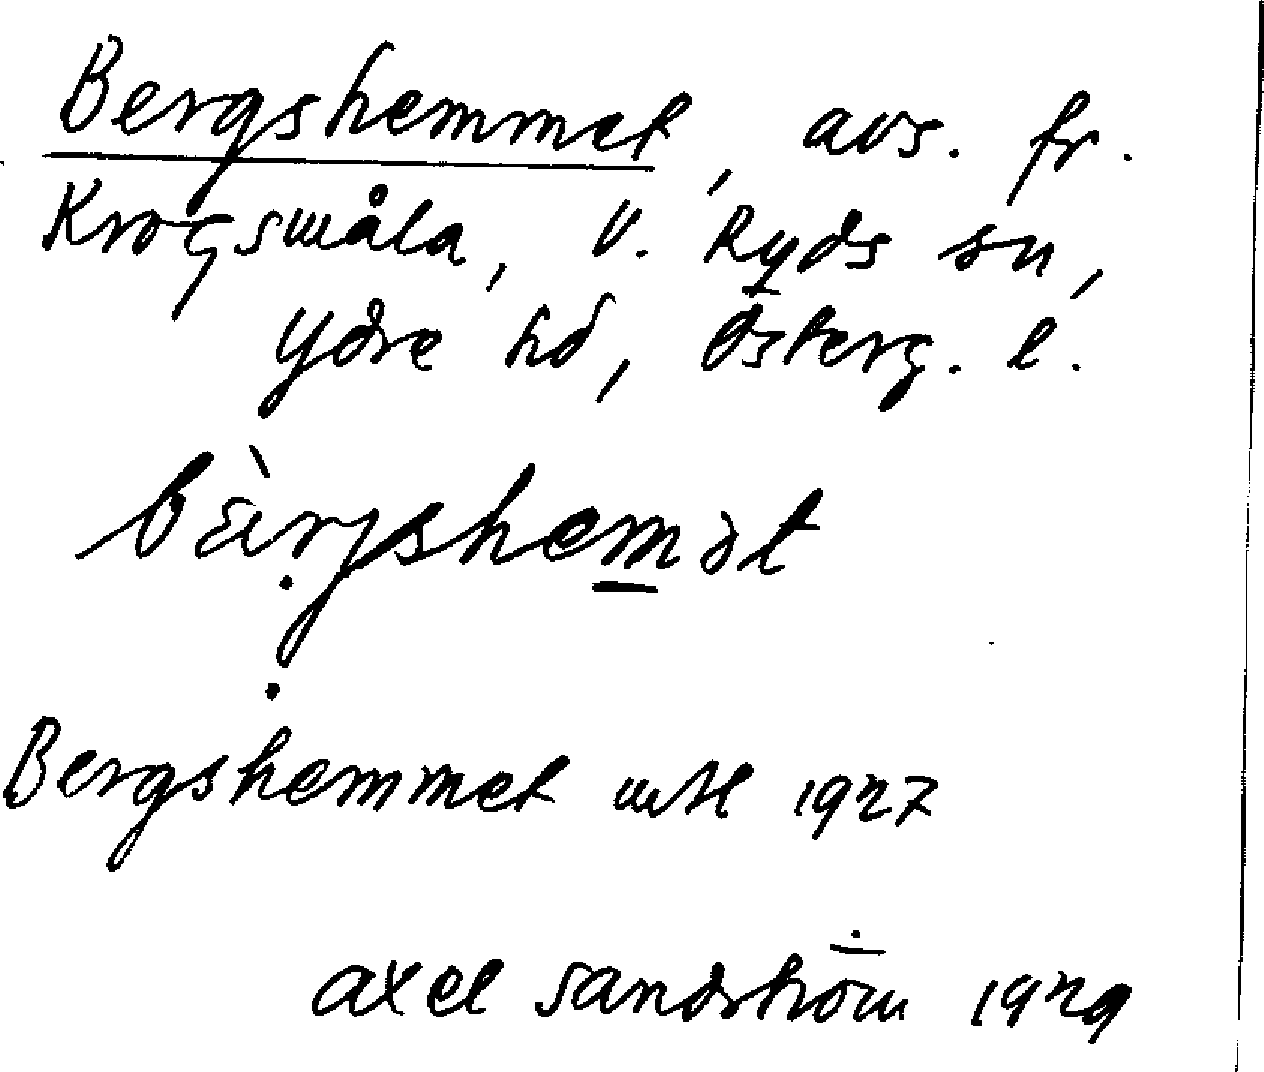 Bergshemmet, avs. fr.
Krogsmåla, V. Ryds sn,
Ydre hd, Österg. l.
bær̤jshem̲ət
Bergshemmet mtl 1927
Axel Sandström 1929